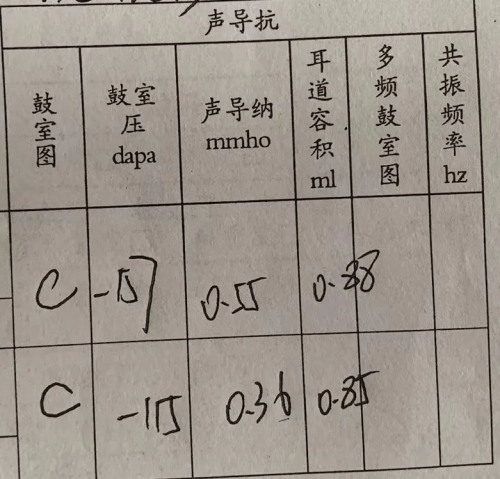 声导抗
鼓室图 鼓室压 dapa 声导纳 mmho 耳道容积 ml 多频鼓室图 共振频率 hz
C -157 0.55 0.88
C -115 0.36 0.85